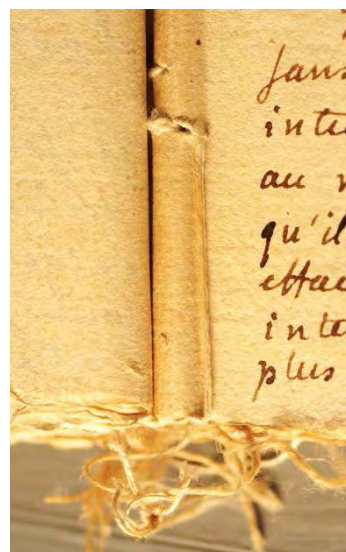 sans
inte
au
qu'il
effac
inte
plus